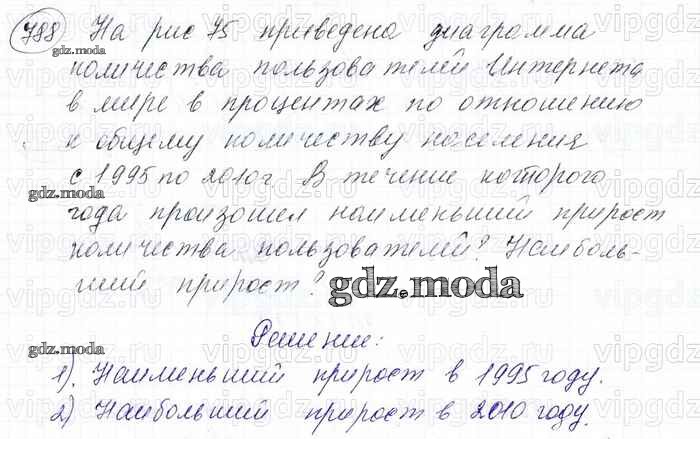 788 На рис 75 приведена диаграмма
gdz.moda
количества пользователей Интернета
в мире в процентах по отношению
к общему количеству населения
с 1995 по 2010г. В течение которого
gdz.moda
года произошел наименьший прирост
количества пользователей? Наиболь-
ший прирост?
gdz.moda
Решение:
gdz.moda
1). Наименьший прирост в 1995 году.
2) Наибольший прирост в 2010 году.
gdz.moda